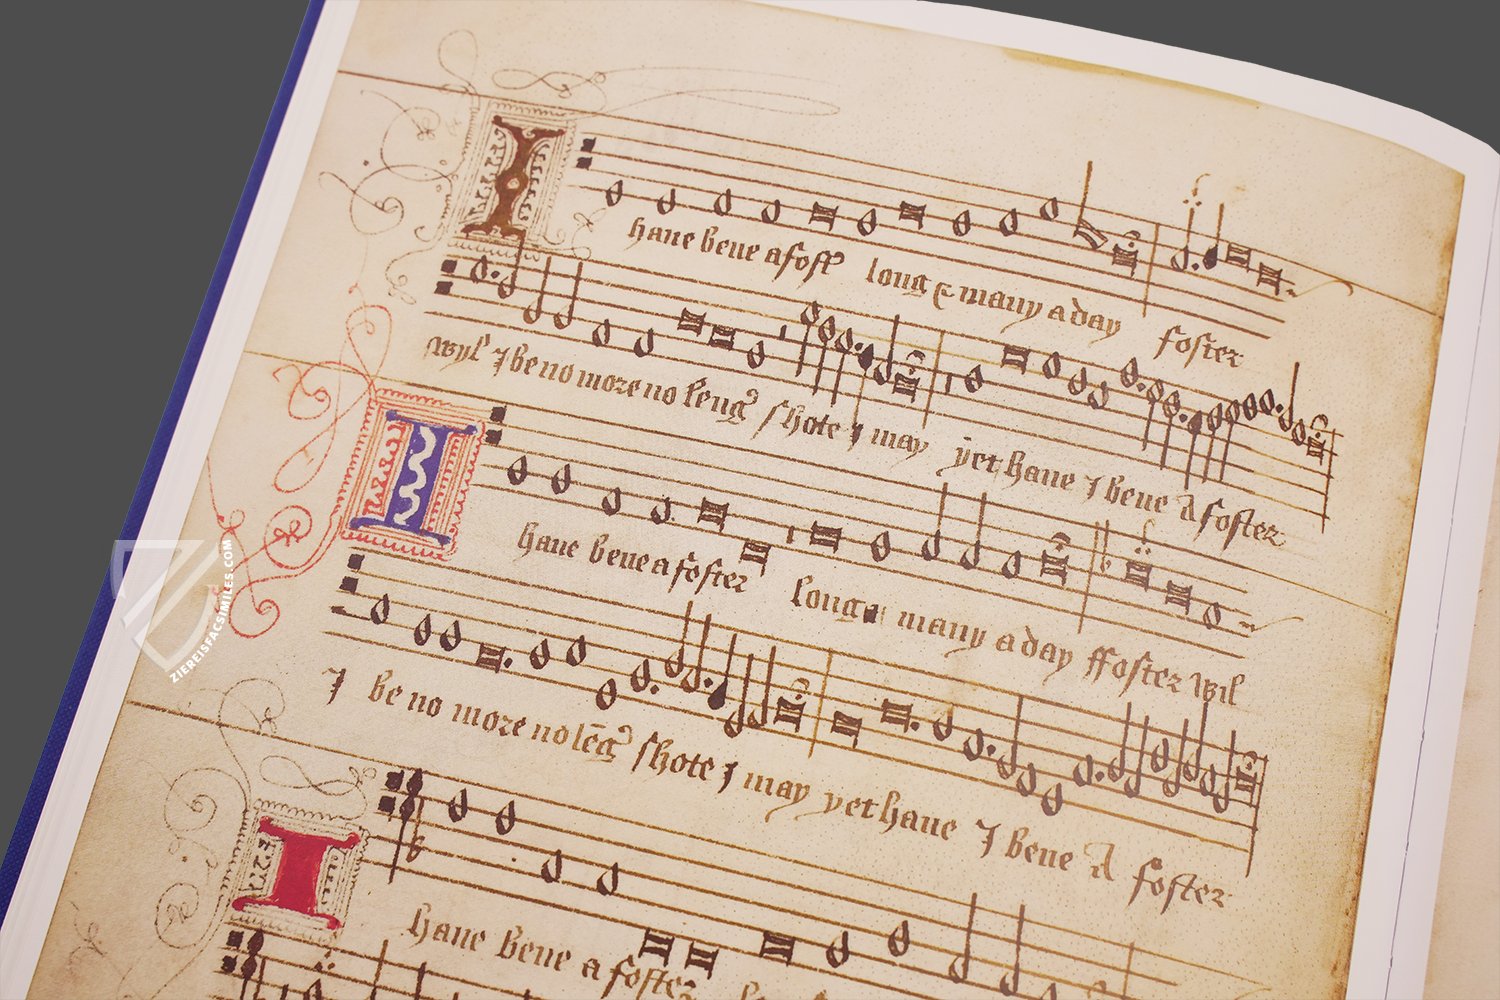 I haue bene a fost͛ long & many a day foster
wyl I be no more no leng͛ shote I may yet haue I bene A foster
I haue bene a foster long many a day ffoster wil
I be no more no lēg͛ shote I may yet haue I bene A foster
I haue bene a foster
ZIEREISFACSIMILES.COM